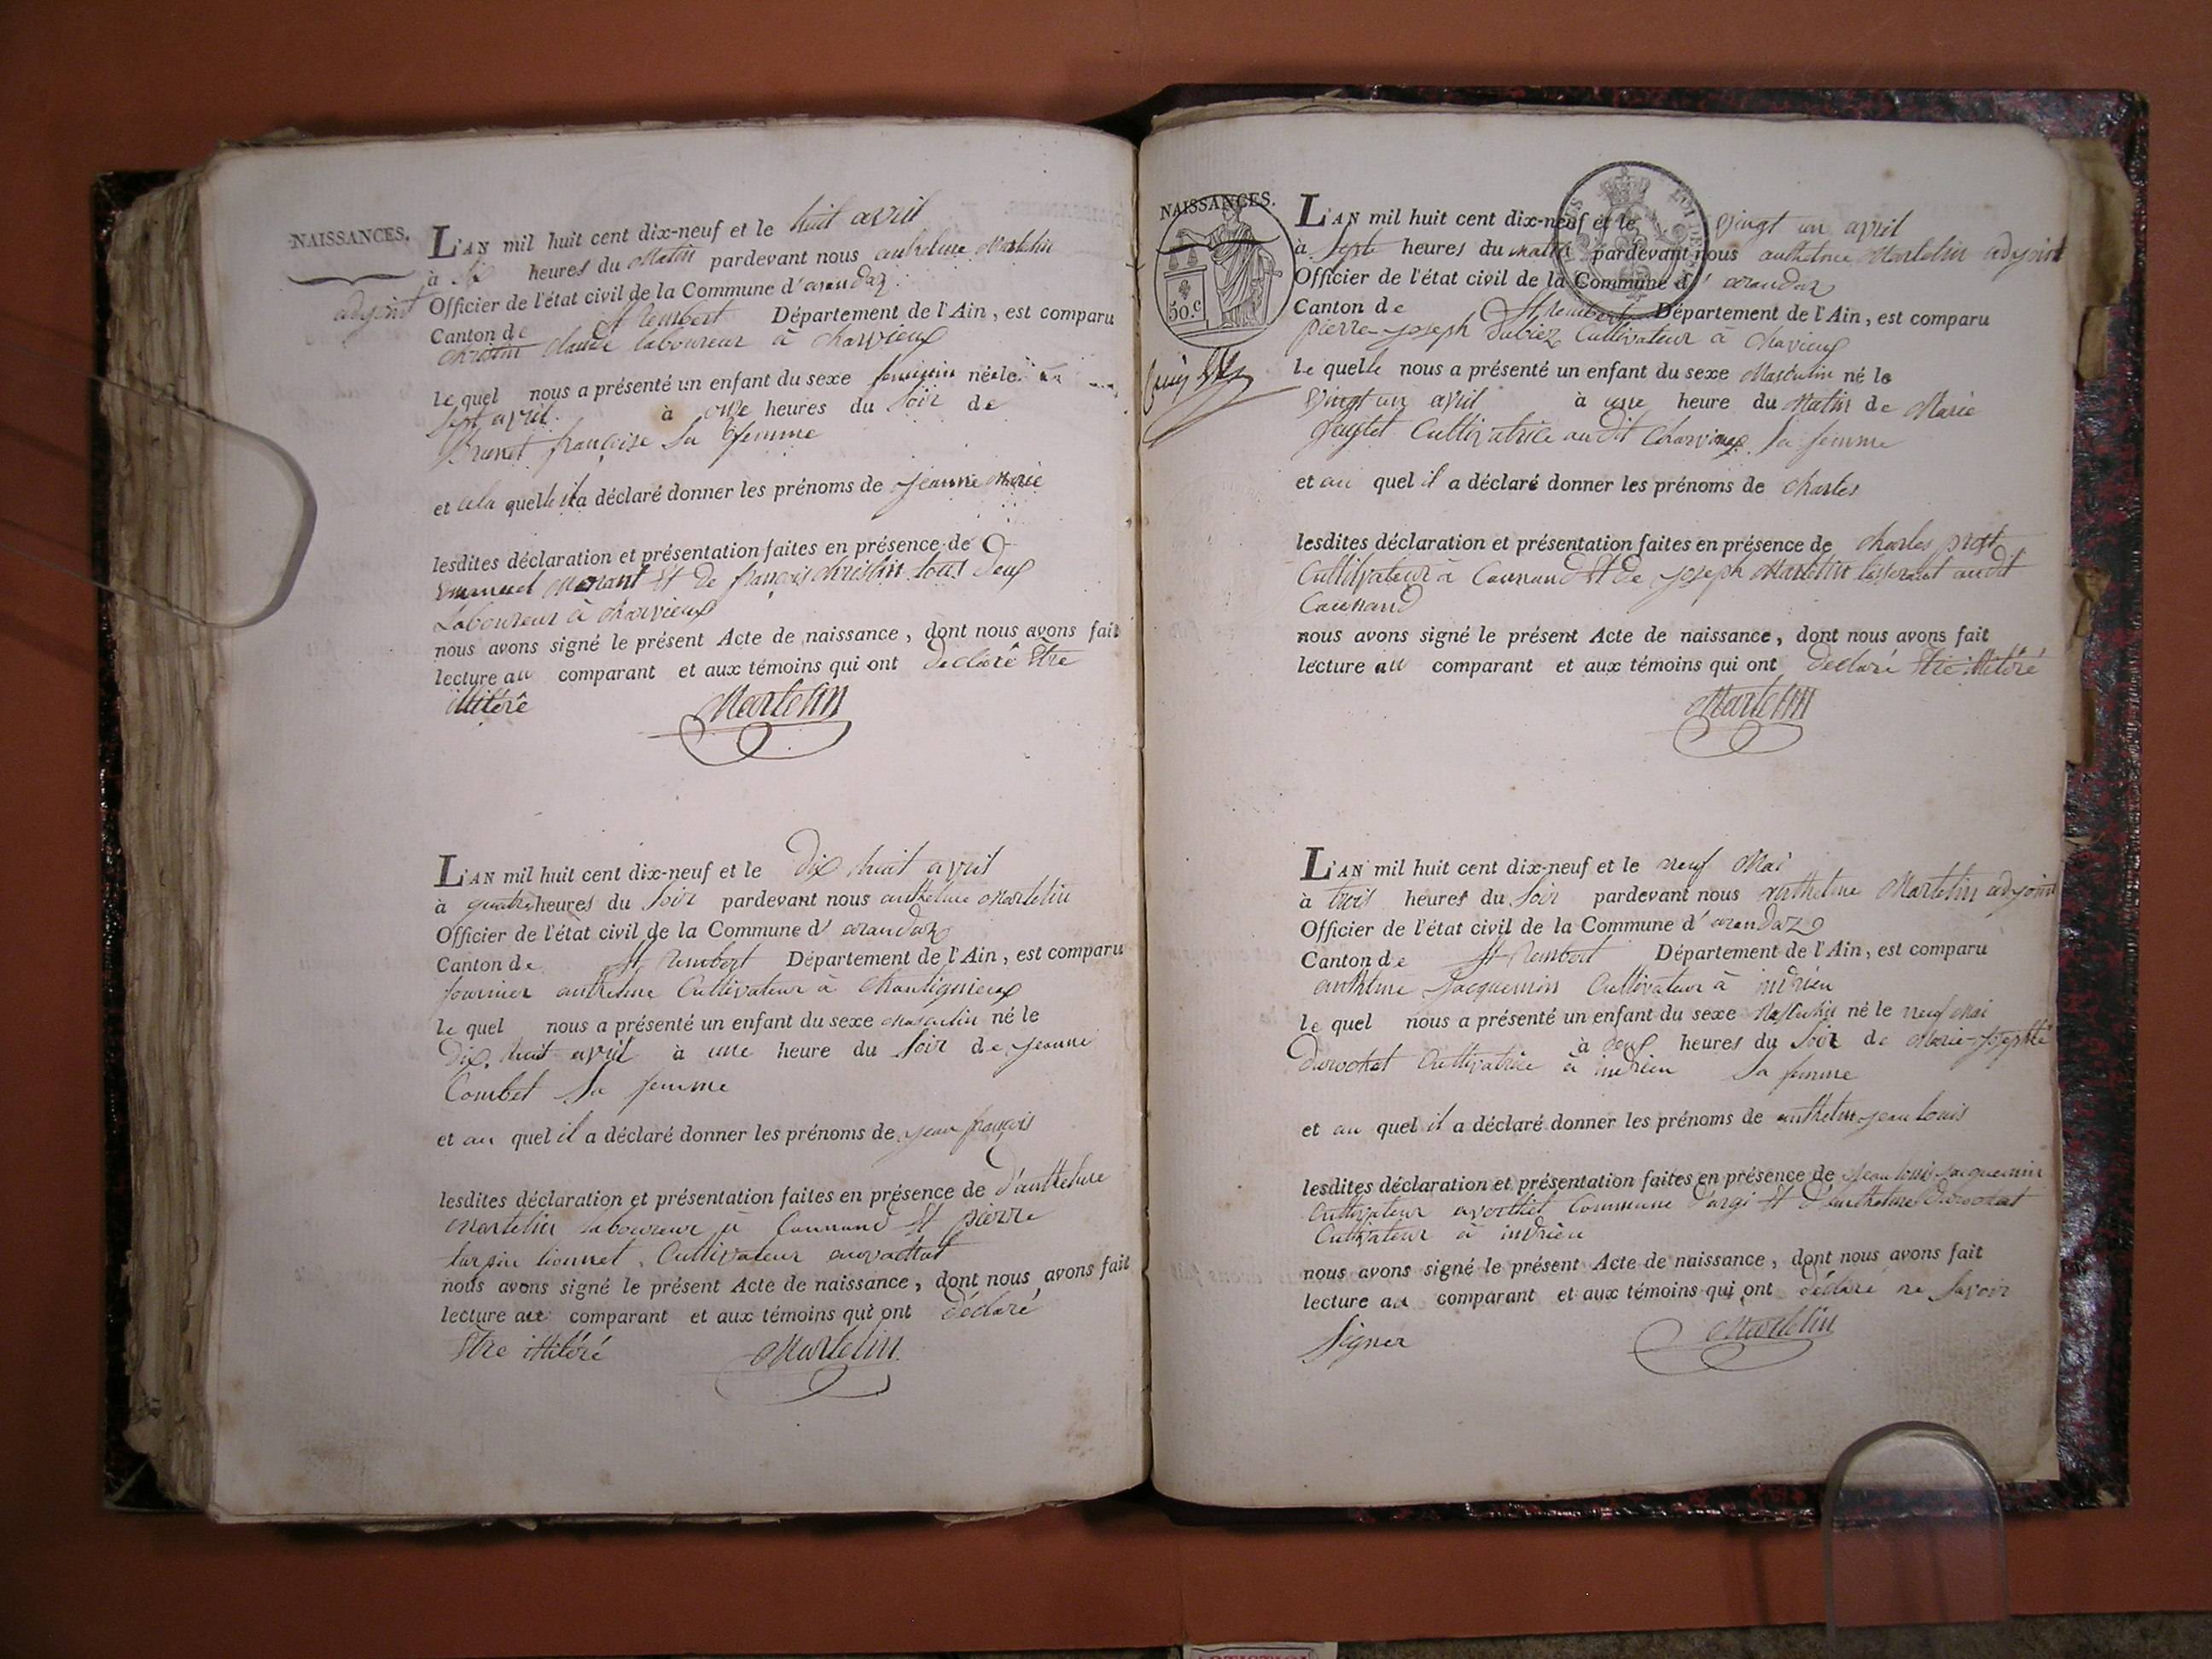 NAISSANCES.
L'AN mil huit cent dix-neuf et le huit avril
à Six heures du Matin pardevant nous anthelme Martelin
adjoint Officier de l'état civil de la Commune d'arandaz
Canton de St Rembert Département de l'Ain, est comparu
christin Claude laboureur à Charvieux
le quel nous a présenté un enfant du sexe feminin née le
Sept avril à onze heures du Soir de
Brunet françoise Sa femme
et a la quelle il a déclaré donner les prénoms de jeanne Marie
lesdites déclaration et présentation faites en présence de
Emanuel Morant Et de françois christin tous deux
Laboureur à charvieux
nous avons signé le présent Acte de naissance, dont nous avons fait
lecture au comparant et aux témoins qui ont declaré Etre
illitéré Martelin
L'AN mil huit cent dix-neuf et le Dix huit avril
à quatre heures du Soir pardevant nous anthelme Martelin
Officier de l'état civil de la Commune d' arandaz
Canton de St Rembert Département de l'Ain, est comparu
fournier anthelme Cultivateur à Chantignieux
le quel nous a présenté un enfant du sexe Masculin né le
Dix huit avril à une heure du Soir de jeanne
Combet Sa femme
et au quel il a déclaré donner les prénoms de jean françois
lesdites déclaration et présentation faites en présence de d'anthelme
Martelin laboureur à Caunand Et pierre
Cultivateur
nous avons signé le présent Acte de naissance, dont nous avons fait
lecture au comparant et aux témoins qui ont déclaré
Etre illitéré Martelin
NAISSANCES.
50.c
L'AN mil huit cent dix-neuf et le vingt un avril
à Sept heures du Matin pardevant nous anthelme Martelin adjoint
Officier de l'état civil de la Commune d' arandaz
Canton de St Rembert Département de l'Ain, est comparu
pierre joseph Cultivateur à Charvieux
le quelle nous a présenté un enfant du sexe Masculin né le
Vingt un avril à une heure du Matin de Marie
Cultivatrice au dit Charvieux Sa femme
et au quel il a déclaré donner les prénoms de Charles
lesdites déclaration et présentation faites en présence de Charles prost
Cultivateur à Caunand Et de joseph Martelin tisserant audit
Caunand
nous avons signé le présent Acte de naissance, dont nous avons fait
lecture au comparant et aux témoins qui ont déclaré Etre illitéré
Martelin
L'AN mil huit cent dix-neuf et le neuf Mai
à trois heures du Soir pardevant nous anthelme Martelin adjoint
Officier de l'état civil de la Commune d' arandaz
Canton de St Rembert Département de l'Ain, est comparu
anthelme Jacquemin Cultivateur à indrieu
le quel nous a présenté un enfant du sexe Masculin né le neuf Mai
à deux heures du Soir de Marie-josephte
Durochat Cultivatrice à indrieu Sa femme
et au quel il a déclaré donner les prénoms de anthelme jean louis
lesdites déclaration et présentation faites en présence de Jean louis Jacquemin
Cultivateur Commune d'argi Et D'anthelme Durochat
Cultivateur à indrieu
nous avons signé le présent Acte de naissance, dont nous avons fait
lecture au comparant et aux témoins qui ont déclaré ne Savoir
Signer Martelin